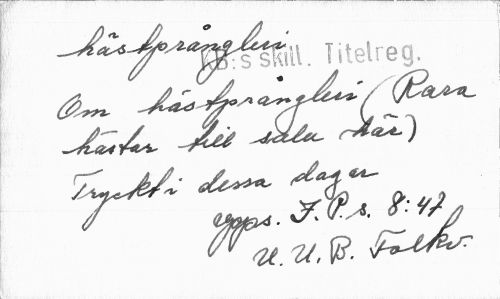 hästprångleri
KB:s skill. Titelreg.
Om hästprångleri (Rara
hästar till salu här)
Tryckt i dessa dagar
Upps. F. P. s. 8:47
U. U. B. Folkv.